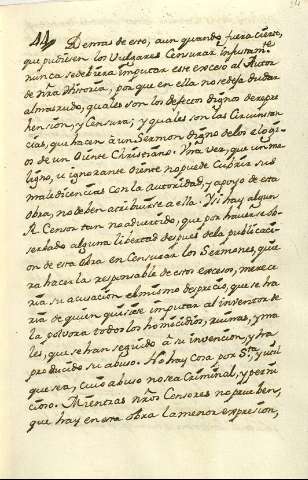 44 Demas de esto, aun quando fuera cierto,
que pudiesen los Vulgares Censurar injustamte
nunca se debiera imputar este exceso al Autor
de nra Historia, porque en ella no se deja dudar
al mas rudo, quales son los defectos dignos de repre
hension, y Censura; y quales son las Circunstan
cias, que hacen à un Sermon digno de los elogi
os de un Oiente Christiano. Una vez, que un ma
ligno, u ignorante Oiente no puede Cubrir sus
maledicencias Con la autoridad, y apoyo de esta
Obra, no deben atribuirse a ella. Y si hay algun
R. Censor tan no advertido, que por haverse ob
servado alguna libertad despues de la publicaci
on de esta Obra en Censurar los Sermones, quie
ra hacerla responsable de estos excesos, merece
ria su acusacion el mismo desprecio, que se ha
ria de quien quisiere imputar al inventor de
la polvora todos los homicidios, ruinas, y ma
les, que se han seguido à su invencion, y ha
producido su abuso. No hay Cosa por Sta, y util
que sea, Cuio abuso no sea Criminal, y perni
cioso. Mientras nros Censores no prueben,
que hay en esta Obra la menor expresion,